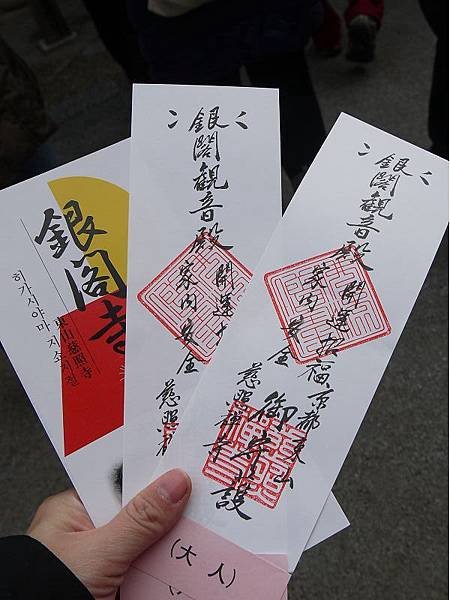 銀閣寺
東山慈照寺
히가시야마 지쇼지절
銀閣観音殿
開運
家内安全
慈照禅寺
銀閣観音殿
開運招福
家内安全
京都東山
慈照禅寺
御守護
(大人)